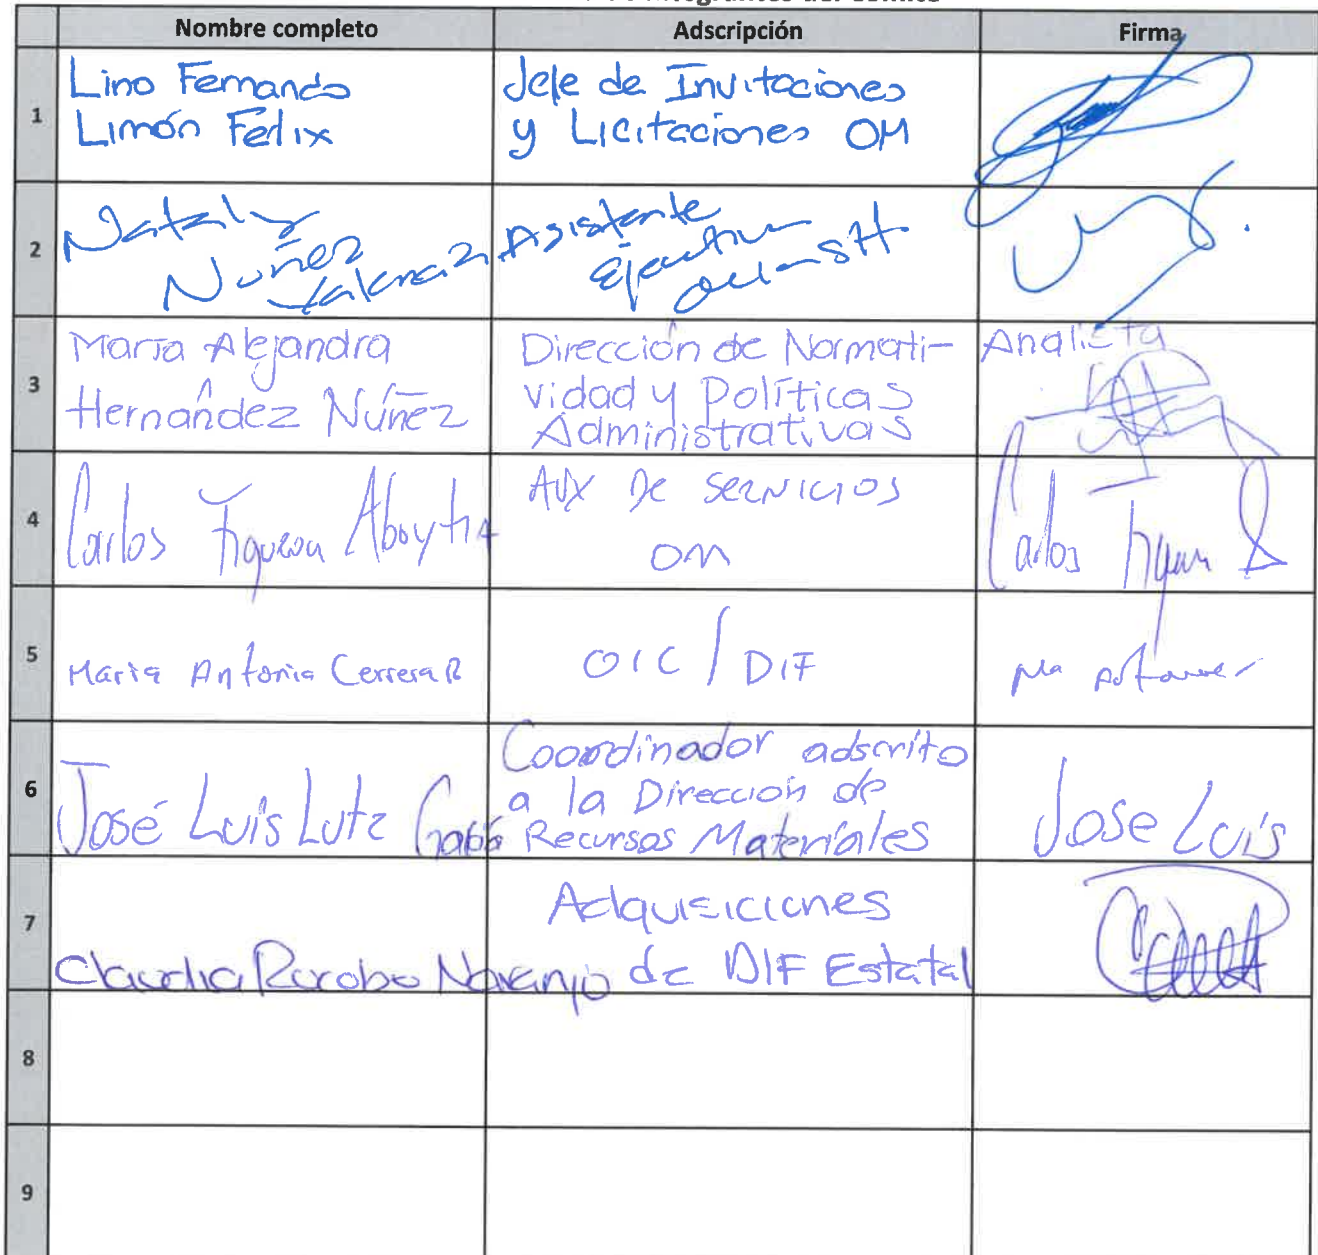 Integrantes del Comité
Nombre completo Adscripción Firma
1
Lino Fernando
Limón Felix
Jefe de Invitaciones
y Licitaciones OM
2
Nataly
Nuñez
Asistente
Ejecutiva
3
María Alejandra
Hernández Núñez
Dirección de Normati-
vidad y Políticas
Administrativas
Analista
4
Carlos Figueroa Aboytia
AUX DE SERVICIOS
OM
Carlos
5
Maria Antonia Cerrera R
OIC / DIF
6
José Luis Lutz
Coordinador adscrito
a la Dirección de
Recursos Materiales
Jose Luis
7
Claudia Robo Naranjo
Adquisiciones
de DIF Estatal
8
9